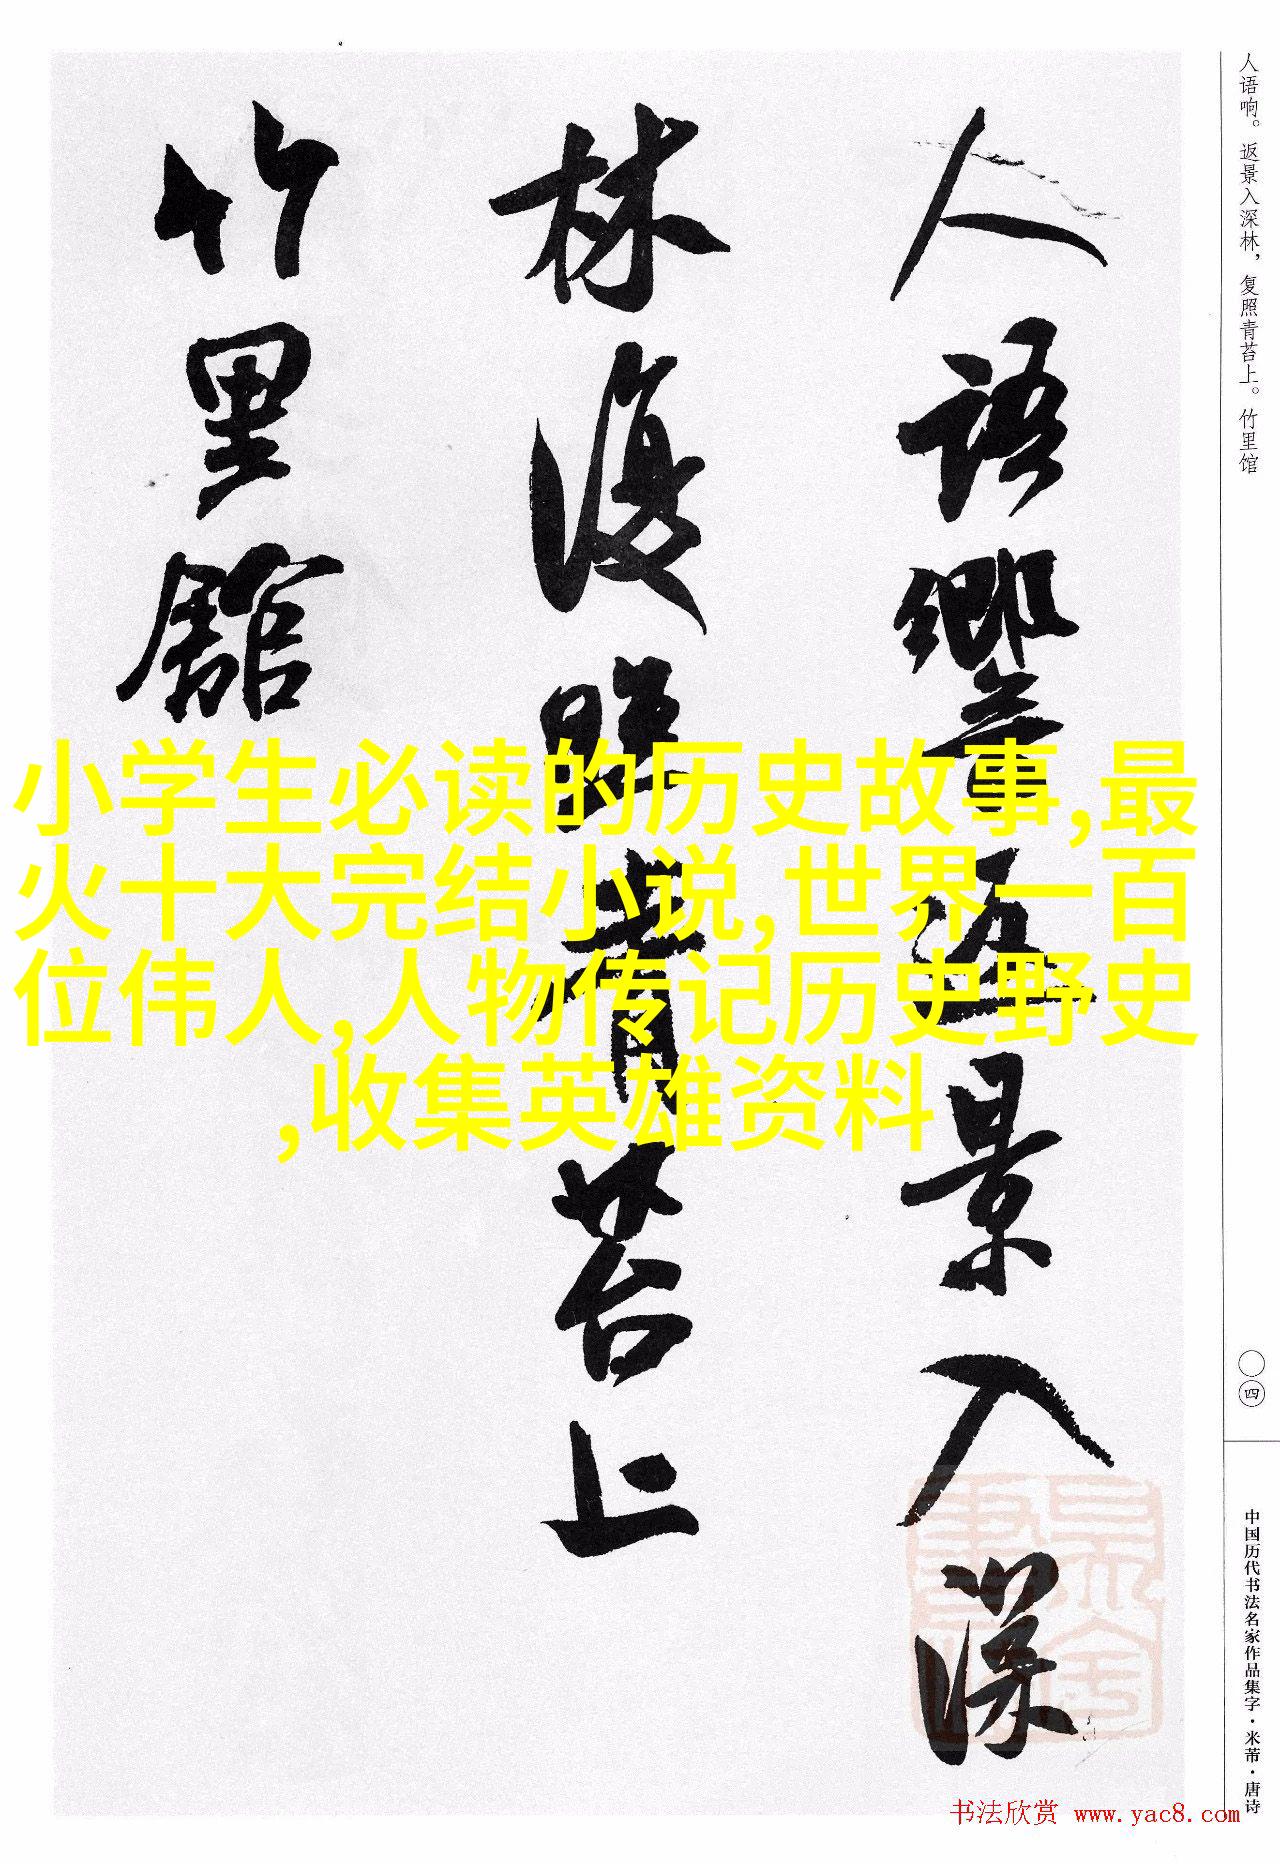 人语响。返景入深林，复照青苔上。竹里馆
人語響返景入深
林復照青苔上
竹里館
小学生必读的历史故事,最
火十大完结小说,世界一百
位伟人,人物传记历史野史
,收集英雄资料
〇四
中国历代书法名家作品集字·米芾·唐诗
书法欣赏 www.yac8.com